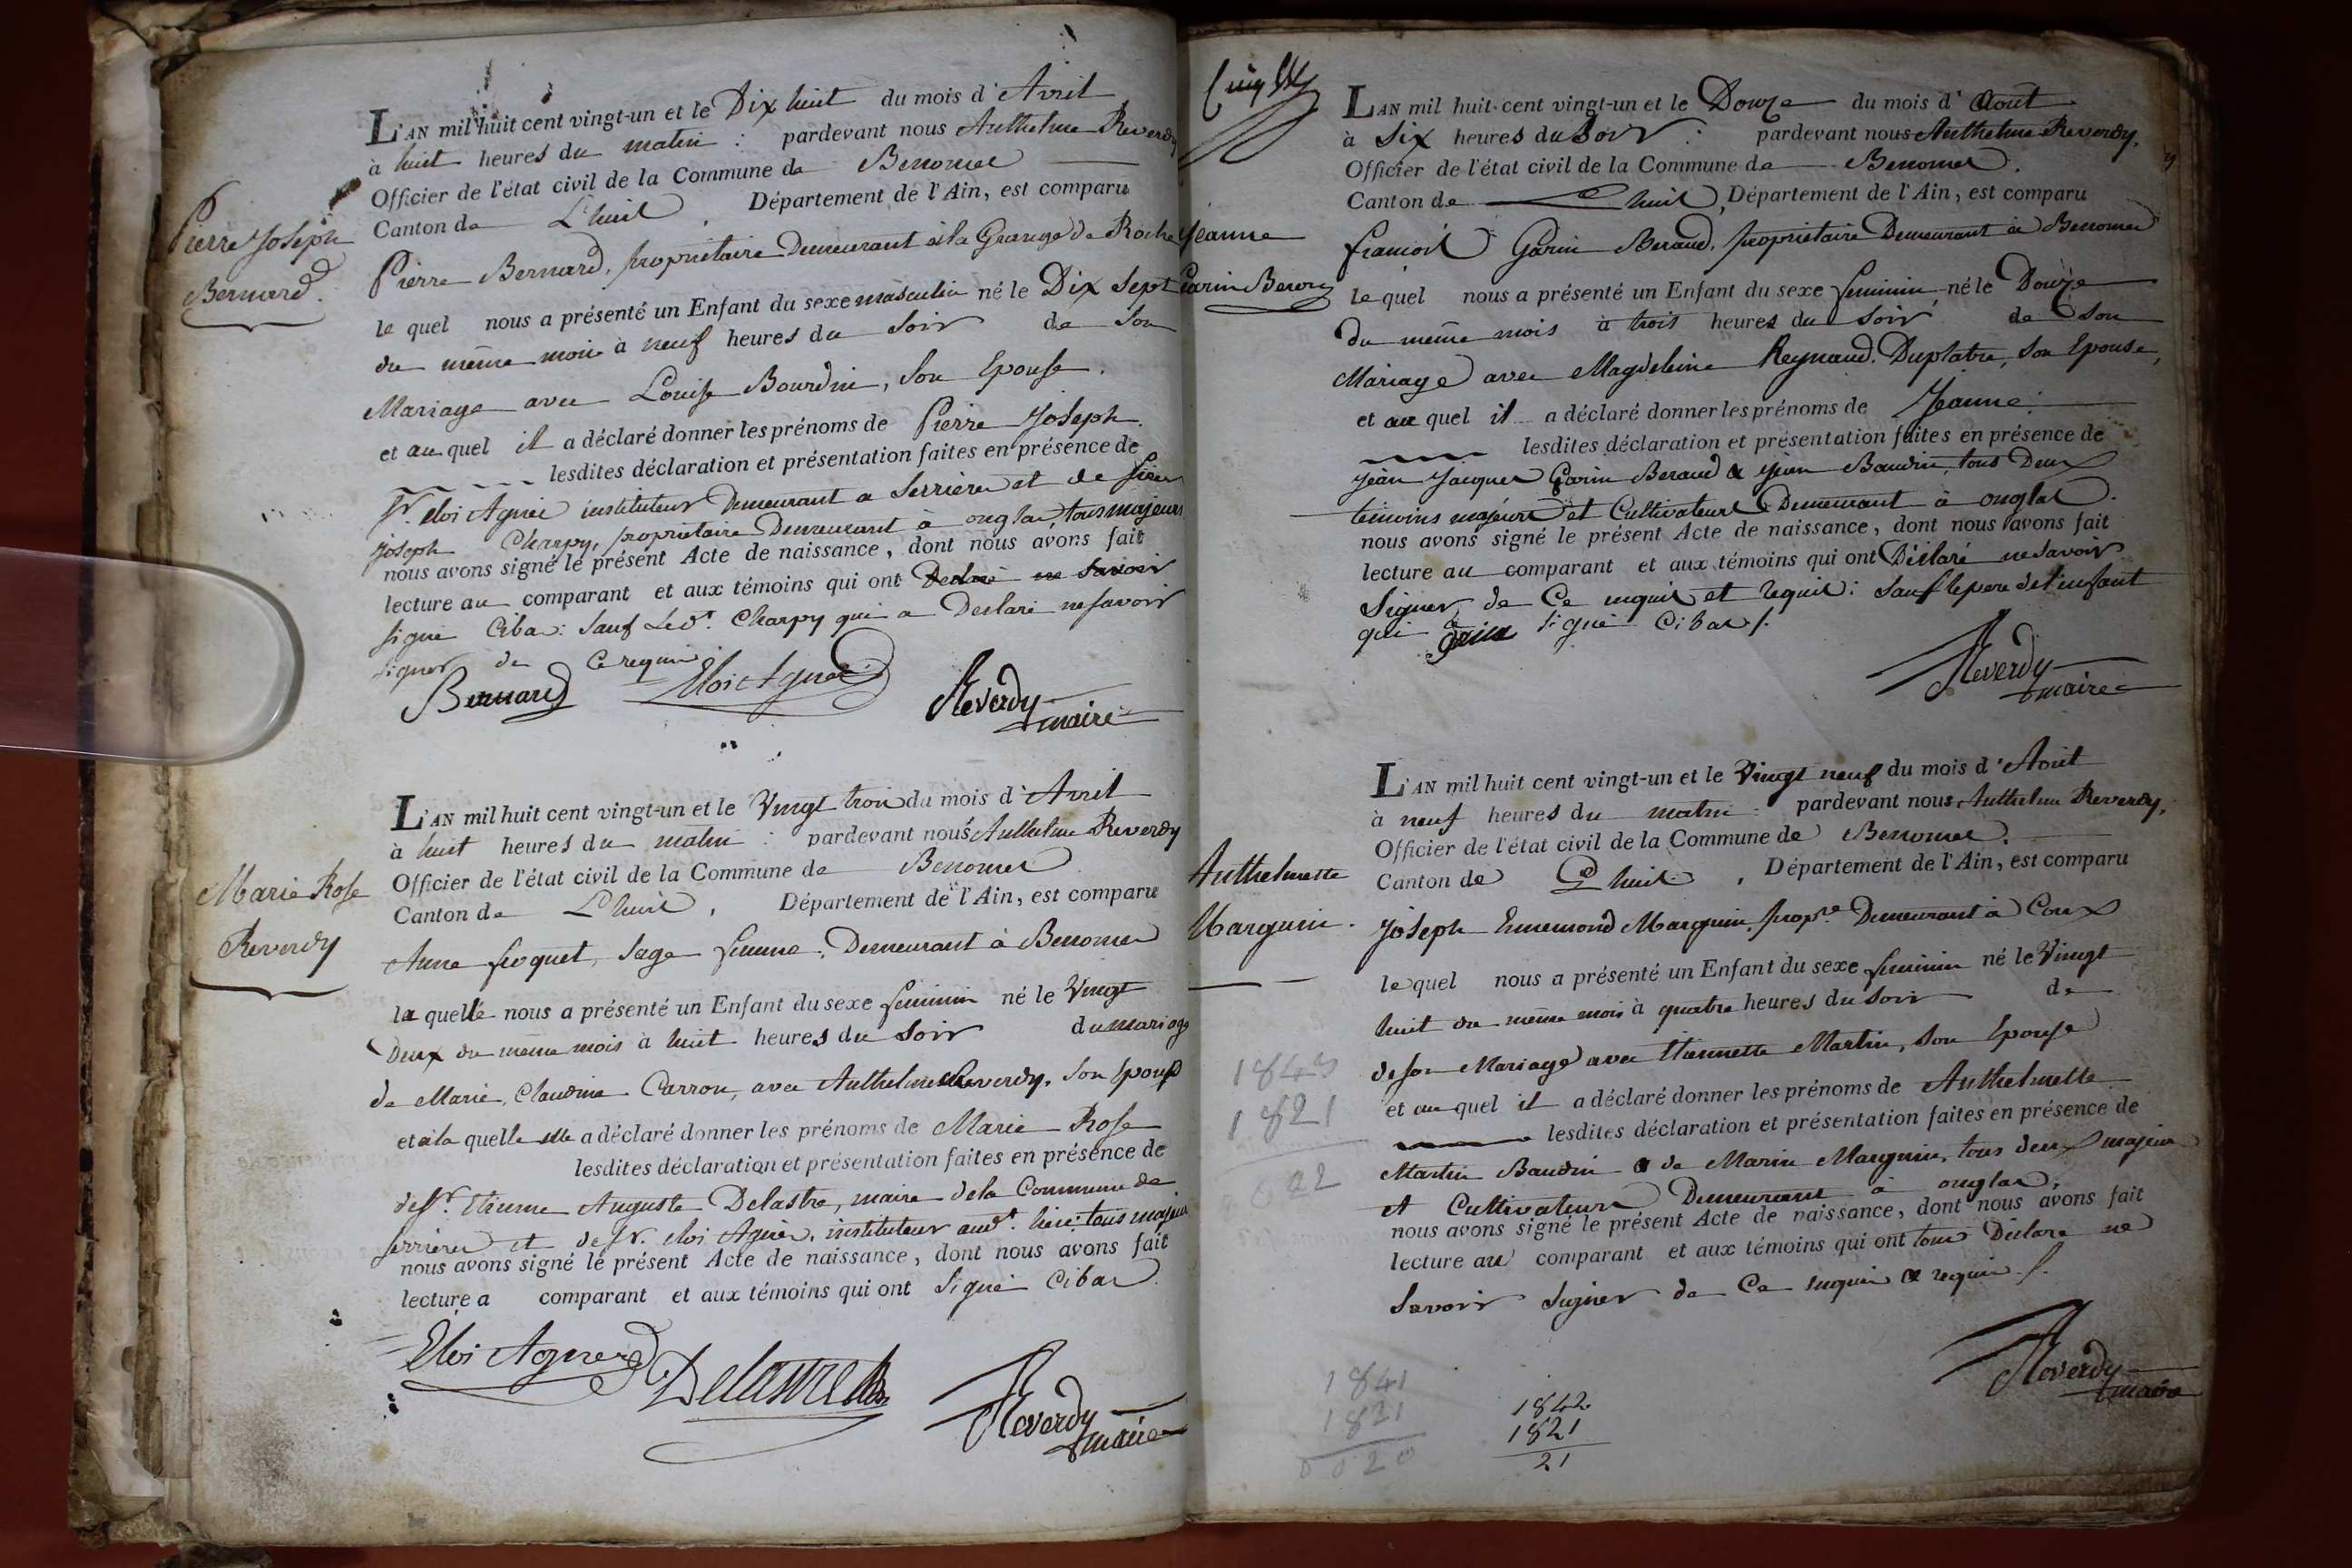 L'AN mil huit cent vingt-un et le Dix huit du mois d'Avril
à huit heures du matin : pardevant nous Anthelme Reverdy
Officier de l'état civil de la Commune de Benonces
Canton de L'huis, Département de l'Ain, est comparu
Pierre Joseph
Bernard.
Pierre Bernard, propriétaire Demeurant à la Grange de Roche
le quel nous a présenté un Enfant du sexe masculin né le Dix Sept
du même mois à neuf heures du Soir de Son
Mariage avec Louise Bourdin, Son Epouse.
et au quel il a déclaré donner les prénoms de Pierre Joseph.
lesdites déclaration et présentation faites en présence de
Sr. eloi Agnès instituteur Demeurant a Serrieres et de Sieur
Joseph Charpy, propriétaire Demeurant à onglas, tous majeurs
nous avons signé le présent Acte de naissance, dont nous avons fait
lecture au comparant et aux témoins qui ont Declaré ne Savoir
signé Cibas: Sauf Led.t Charpy qui a Declaré ne savoir
signer de Ce requis.
Bernard Eloi Agnès Reverdy
maire
L'AN mil huit cent vingt-un et le Vingt trois du mois d'Avril
à huit heures du matin : pardevant nous Anthelme Reverdy
Officier de l'état civil de la Commune de Benonces
Canton de L'huis, Département de l'Ain, est comparu
Marie Rose
Reverdy
Anne sage femme, Demeurant à Benonces
la quelle nous a présenté un Enfant du sexe feminin né le Vingt
Deux du même mois à huit heures du Soir du mariage
de Marie, Claudine Carron, avec Anthelme Reverdy, Son Epoux
et à la quelle elle a déclaré donner les prénoms de Marie Rose
lesdites déclaration et présentation faites en présence de
de Sr. Etienne Auguste Delastre, maire de la Commune de
serrieres et de Sr. eloi Agnès, instituteur aud.t lieu: tous majeurs
nous avons signé le présent Acte de naissance, dont nous avons fait
lecture a comparant et aux témoins qui ont Signé Cibas
Eloi Agnès Delastre Reverdy
maire
L'AN mil huit cent vingt-un et le Douze du mois d'Aout
à Six heures du Soir : pardevant nous Anthelme Reverdy,
Officier de l'état civil de la Commune de Benonces.
Canton de Lhuis, Département de l'Ain, est comparu
Jeanne
Garin Beroud
françois Garin Beraud, propriétaire Demeurant à Benonces
le quel nous a présenté un Enfant du sexe feminin, né le Douze
du même mois à trois heures du Soir de Son
Mariage avec Magdeleine Reynaud. Duplatre, Son Epouse,
et au quel il a déclaré donner les prénoms de Jeanne.
lesdites déclaration et présentation faites en présence de
Jean Jacques Garin Beraud & Jean Baudin, tous Deux
témoins majeurs et Cultivateurs Demeurant à onglas.
nous avons signé le présent Acte de naissance, dont nous avons fait
lecture au comparant et aux témoins qui ont Déclaré ne Savoir
Signer, de Ce enquis et Requis: Sauf le pere de l'enfant
qui a signé Cibas /.
Reverdy
maire
L'AN mil huit cent vingt-un et le Vingt neuf du mois d'Aout
à neuf heures du matin : pardevant nous Anthelme Reverdy,
Officier de l'état civil de la Commune de Benonces.
Canton de Lhuis, Département de l'Ain, est comparu
Anthelmette
Marguin.
Joseph Ennemond Marguin, prop.re Demeurant à Coux
le quel nous a présenté un Enfant du sexe feminin né le Vingt
huit du même mois à quatre heures du Soir de
de son Mariage avec Etiennette Martin, Son Epouse
et au quel il a déclaré donner les prénoms de Anthelmette
lesdites déclaration et présentation faites en présence de
Martin Baudin & de Marin Marguin, tous deux majeurs
et Cultivateurs Demeurant à onglas,
nous avons signé le présent Acte de naissance, dont nous avons fait
lecture au comparant et aux témoins qui ont tous Déclaré ne
Savoir Signer de Ce enquis & requis /.
Reverdy
maire
1843
1821
0022
1841
1821
0020
1842
1821
21